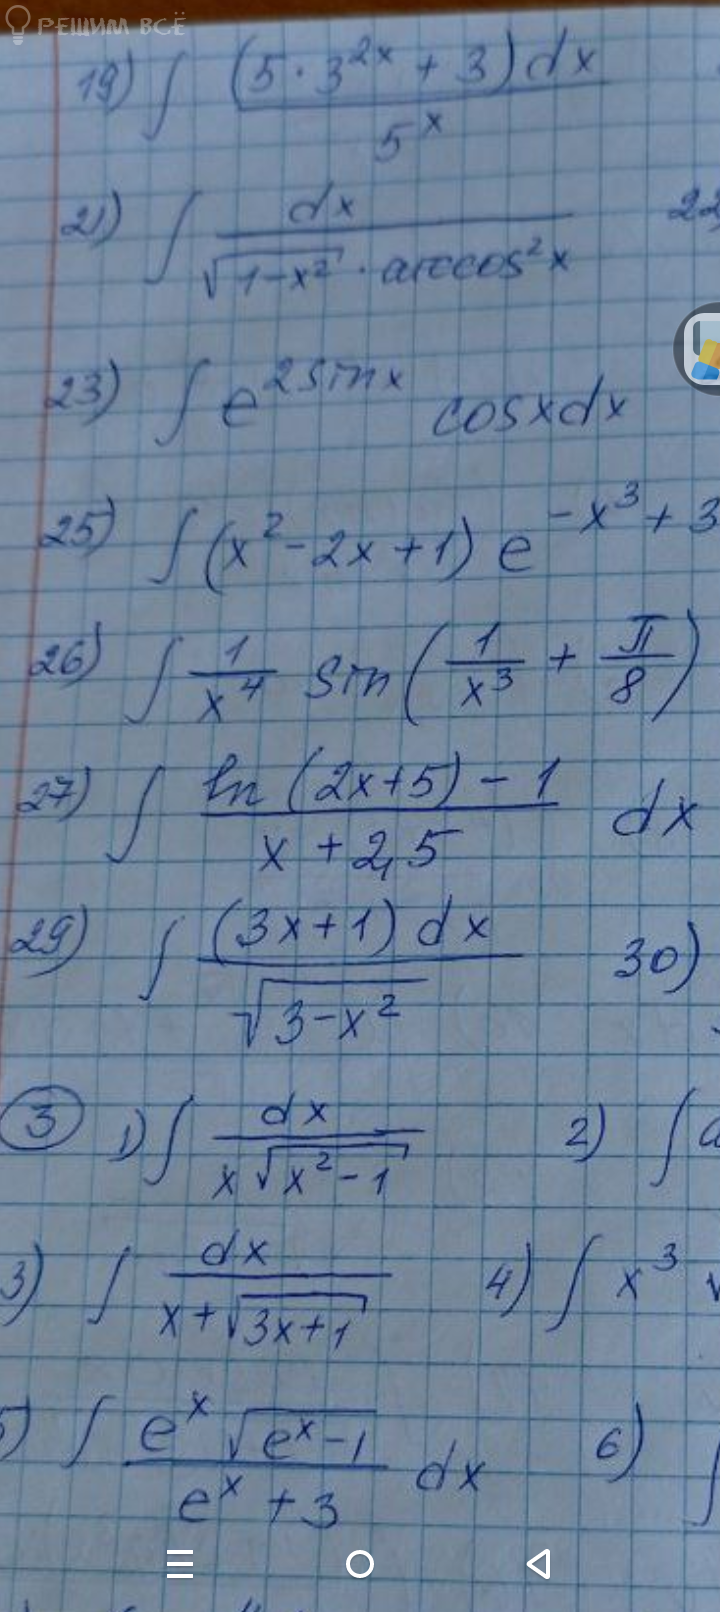 РЕШИМ ВСЁ
19) ∫ (5 · 3^{2x} + 3) dx / 5^x
21) ∫ dx / (√(1-x²) · arccos²x)
22
23) ∫ e^{2 sin x} cos x dx
25) ∫ (x² - 2x + 1) e^{-x³ + 3
26) ∫ 1/x⁴ sin(1/x³ + π/8)
27) ∫ (ln(2x+5) - 1) / (x + 2,5) dx
29) ∫ (3x+1) dx / √(3-x²) 30)
③ 1) ∫ dx / (x√(x²-1)) 2) ∫ a
3) ∫ dx / (x + √(3x+1)) 4) ∫ x³ √
5) ∫ e^x √(e^x - 1) / (e^x + 3) dx 6) ∫